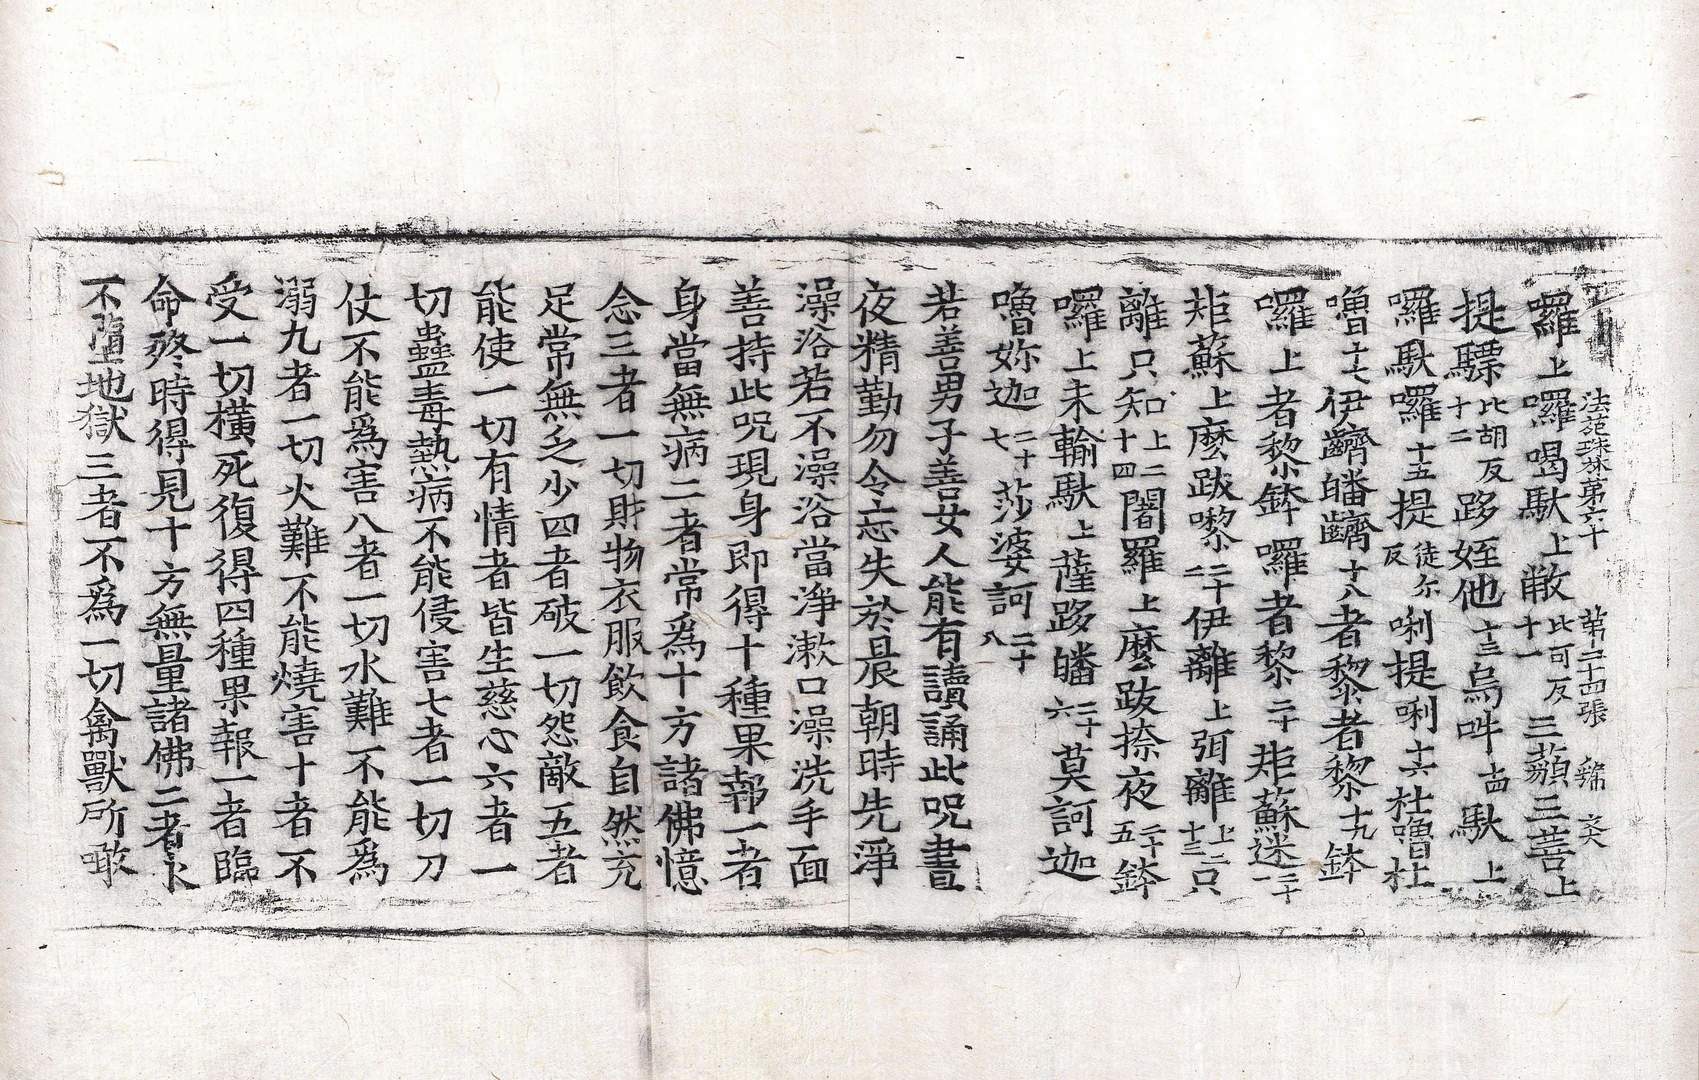 法苑珠林第六十 第二十四張 綿 文
囉上囉喝䭾上㪍比可反十一三藐三菩上
提驃比胡反十二跢姪他十三烏吽十四䭾上
囉䭾囉十五提徒尔反唎提唎十六杜嚕杜
嚕十七伊䶩皤䶩十八者黎者黎十九鉢
囉上者黎鉢囉者黎二十矩蘇迷二十一
矩蘇上麼跋嚟二十二伊離上弭離上二十三只
離只知口上二十四闍羅上麼跋捺夜二十五鉢
囉上未輸䭾上薩跢皤二十六莫訶迦
嚕妳迦二十七莎婆訶二十八
若善男子善女人能有讀誦此呪晝
夜精勤勿令忘失於晨朝時先淨
澡浴若不澡浴當淨漱口澡洗手面
善持此呪現身即得十種果報一者
身當無病二者常爲十方諸佛憶
念三者一切財物衣服飲食自然充
足常無乏少四者破一切怨敵五者
能使一切有情者皆生慈心六者一
切蠱毒熱病不能侵害七者一切刀
仗不能爲害八者一切水難不能爲
溺九者一切火難不能燒害十者不
受一切橫死復得四種果報一者臨
命終時得見十方無量諸佛二者永
不墮地獄三者不爲一切禽獸所噉